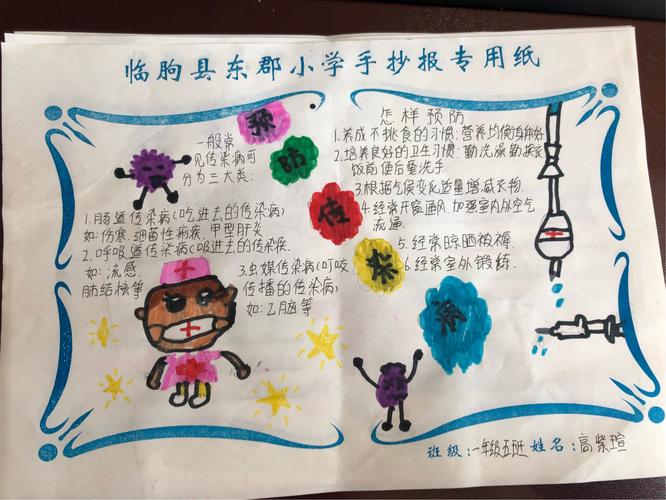 临朐县东郡小学手抄报专用纸
预
防
传
染
病
一般常
见传染病可
分为三大类:
1.肠道传染病(吃进去的传染病)
如:伤寒.细菌性痢疾.甲型肝炎
2.呼吸道传染病(吸进去的传染疾.
如:流感.
肺结核等
3.虫媒传染病(叮咬
传播的传染病)
如:乙脑等
怎样预防
1.养成不挑食的习惯:营养均衡身体好
2.培养良好的卫生习惯:勤洗澡勤换衣
饭前便后要洗手
3.根据气候变化适量增减衣物.
4.经常开窗通风.加强室内外空气
流通.
5.经常晾晒被褥.
6.经常室外锻练.
班级:一年级五班 姓名:高紫瑄